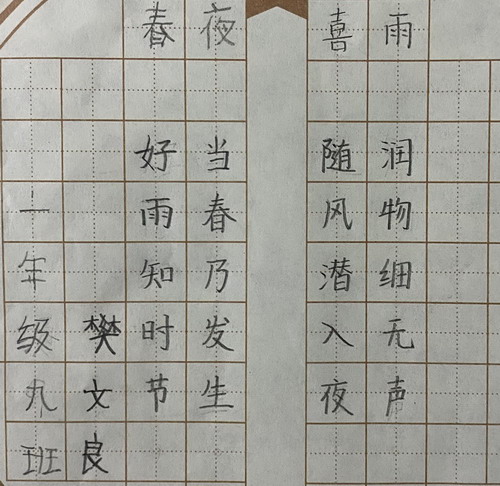 春夜喜雨
好雨知时节
当春乃发生
随风潜入夜
润物细无声
一年级丸班
樊文良